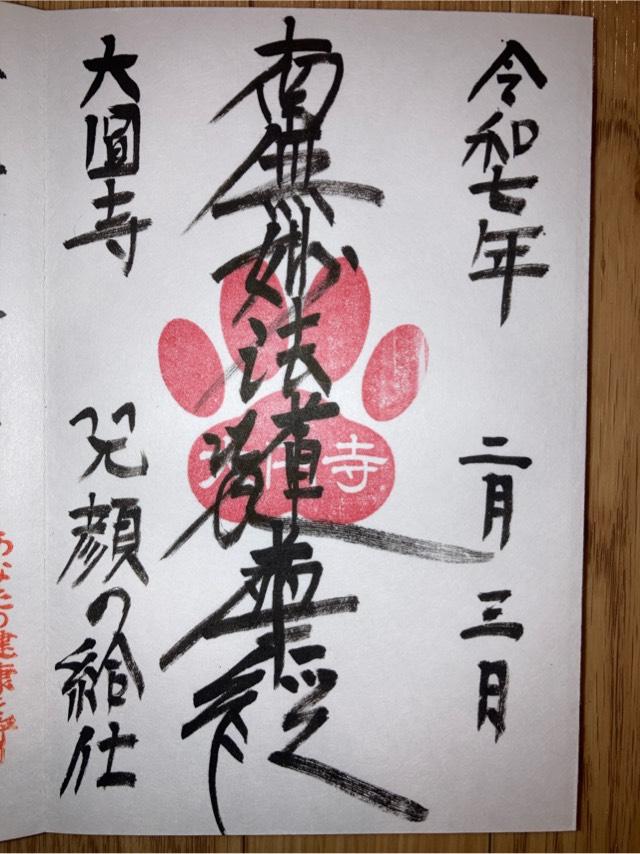 令和七年 二月 三日
南無妙法蓮華経
寺
大圓寺 顔の給仕
あなたの健康を